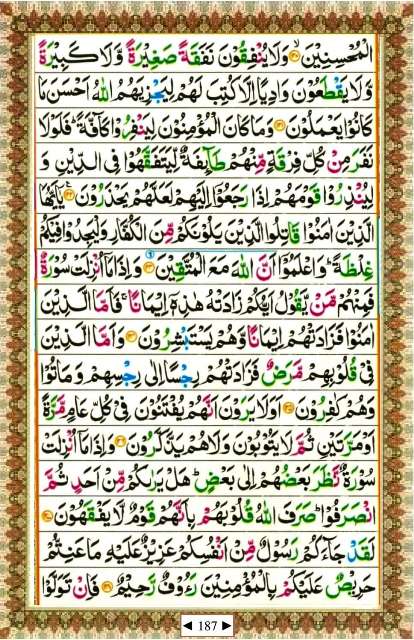 الْمُحْسِنِيْنَ ۙ﴿۱۲۰﴾ وَلَا يُنْفِقُوْنَ نَفَقَةً صَغِيْرَةً وَّلَا كَبِيْرَةً
وَّلَا يَقْطَعُوْنَ وَادِيًا اِلَّا كُتِبَ لَهُمْ لِيَجْزِيَهُمُ اللّٰهُ اَحْسَنَ مَا
كَانُوْا يَعْمَلُوْنَ ﴿۱۲۱﴾ وَمَا كَانَ الْمُؤْمِنُوْنَ لِيَنْفِرُوْا كَآفَّةً ؕ فَلَوْلَا
نَفَرَ مِنْ كُلِّ فِرْقَةٍ مِّنْهُمْ طَآئِفَةٌ لِّيَتَفَقَّهُوْا فِى الدِّيْنِ وَ
لِيُنْذِرُوْا قَوْمَهُمْ اِذَا رَجَعُوْۤا اِلَيْهِمْ لَعَلَّهُمْ يَحْذَرُوْنَ ﴿۱۲۲﴾ يٰۤاَيُّهَا
الَّذِيْنَ اٰمَنُوْا قَاتِلُوا الَّذِيْنَ يَلُوْنَكُمْ مِّنَ الْكُفَّارِ وَلْيَجِدُوْا فِيْكُمْ
غِلْظَةً ؕ وَاعْلَمُوْۤا اَنَّ اللّٰهَ مَعَ الْمُتَّقِيْنَ ﴿۱۲۳﴾ وَاِذَا مَاۤ اُنْزِلَتْ سُوْرَةٌ
فَمِنْهُمْ مَّنْ يَّقُوْلُ اَيُّكُمْ زَادَتْهُ هٰذِهٖۤ اِيْمَانًا ۚ فَاَمَّا الَّذِيْنَ
اٰمَنُوْا فَزَادَتْهُمْ اِيْمَانًا وَّهُمْ يَسْتَبْشِرُوْنَ ﴿۱۲۴﴾ وَاَمَّا الَّذِيْنَ
فِىْ قُلُوْبِهِمْ مَّرَضٌ فَزَادَتْهُمْ رِجْسًا اِلٰى رِجْسِهِمْ وَمَاتُوْا
وَهُمْ كٰفِرُوْنَ ﴿۱۲۵﴾ اَوَلَا يَرَوْنَ اَنَّهُمْ يُفْتَنُوْنَ فِىْ كُلِّ عَامٍ مَّرَّةً
اَوْ مَرَّتَيْنِ ثُمَّ لَا يَتُوْبُوْنَ وَلَا هُمْ يَذَّكَّرُوْنَ ﴿۱۲۶﴾ وَاِذَا مَاۤ اُنْزِلَتْ
سُوْرَةٌ نَّظَرَ بَعْضُهُمْ اِلٰى بَعْضٍ ؕ هَلْ يَرٰىكُمْ مِّنْ اَحَدٍ ثُمَّ
انْصَرَفُوْا ؕ صَرَفَ اللّٰهُ قُلُوْبَهُمْ بِاَنَّهُمْ قَوْمٌ لَّا يَفْقَهُوْنَ ﴿۱۲۷﴾
لَقَدْ جَآءَكُمْ رَسُوْلٌ مِّنْ اَنْفُسِكُمْ عَزِيْزٌ عَلَيْهِ مَا عَنِتُّمْ
حَرِيْصٌ عَلَيْكُمْ بِالْمُؤْمِنِيْنَ رَءُوْفٌ رَّحِيْمٌ ﴿۱۲۸﴾ فَاِنْ تَوَلَّوْا
◄ 187 ►